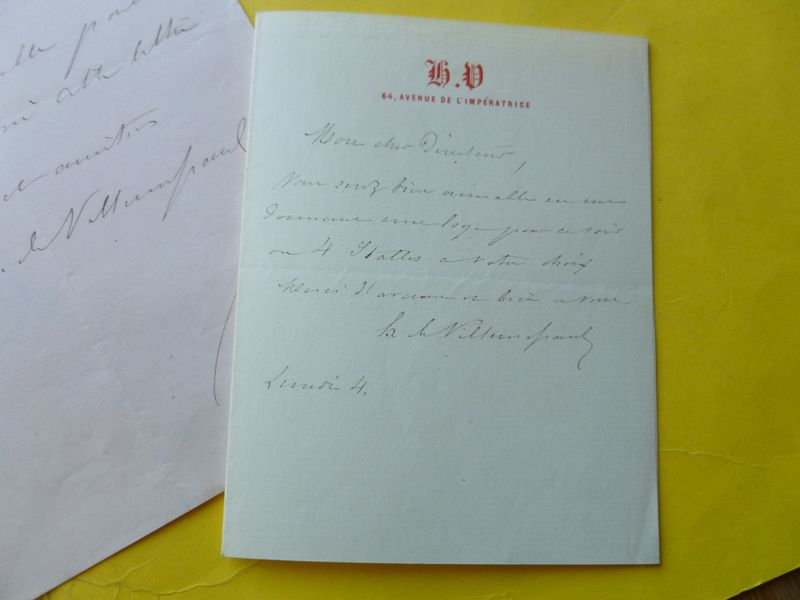 H.V
64, AVENUE DE L'IMPÉRATRICE
Mon cher Directeur,
Vous serez bien aimable en me
donnant une loge pour ce soir
ou 4 Stalles a votre choix
Merci d'avance et bien a vous
H de Villemessant
Lundi 4.
cette lettre
et amitiés
de Villemessant